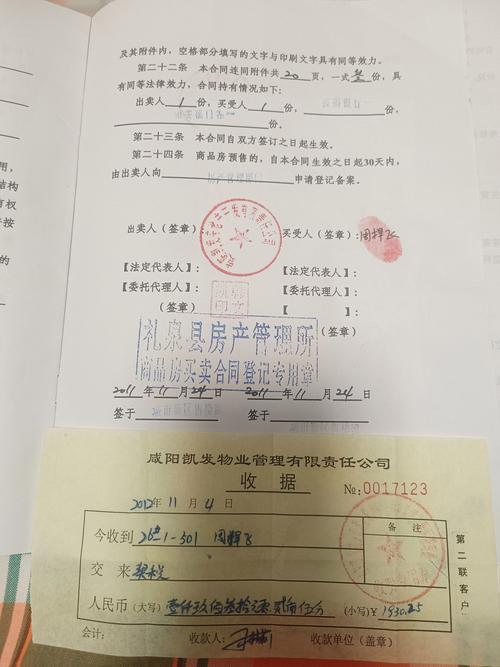 及其附件内，空格部分填写的文字与印刷文字具有同等效力。
第二十二条 本合同连同附件共20页，一式叁份，具
有同等法律效力，合同持有情况如下：
出卖人 1 份，买受人 1 份，
份。
第二十三条 本合同自双方签订之日起生效。
第二十四条 商品房预售的，自本合同生效之日起30天内，
由出卖人向 申请登记备案。
出卖人（签章）： 买受人（签章）：周捍飞
【法定代表人】： 【法定代表人】：
【委托代理人】： 【委托代理人】：
（签章） 【 】
（签章）
礼泉县房产管理所
商品房买卖合同登记专用章
2011年11月24日 2011年11月24日
签于 签于
咸阳凯发物业管理有限责任公司
收据 №:0017123
2012年11月4日
今收到 26#1-301 周捍飞 备注
交来 契税
人民币（大写）壹仟玖佰叁拾元零贰角伍分（小写）¥1930.25
第二联客户
会计： 收款人： 收款单位（盖章）